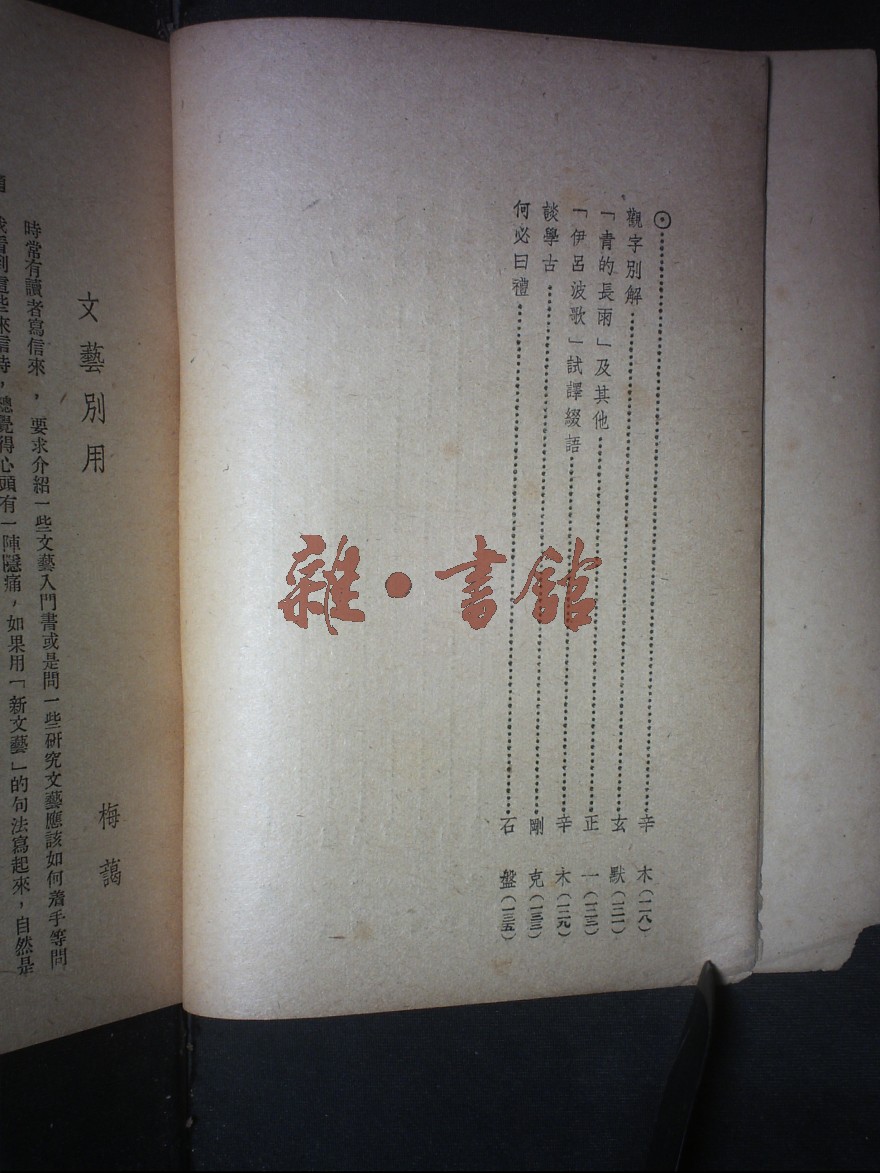 ⊙……辛木(一一八)
觀字別解……玄默(一二一)
「青的長雨」及其他……正一(一二三)
「伊呂波歌」試譯綴語……辛木(一二九)
談學古……剛克(一三三)
何必曰禮……石盤(一三五)
雜·書館
文藝別用 梅藹
時常有讀者寫信來,要求介紹一些文藝入門書或是問一些研究文藝應該如何着手等問
看到這些來信時,總覺得心頭有一陣隱痛,如果用「新文藝」的句法寫起來,自然是